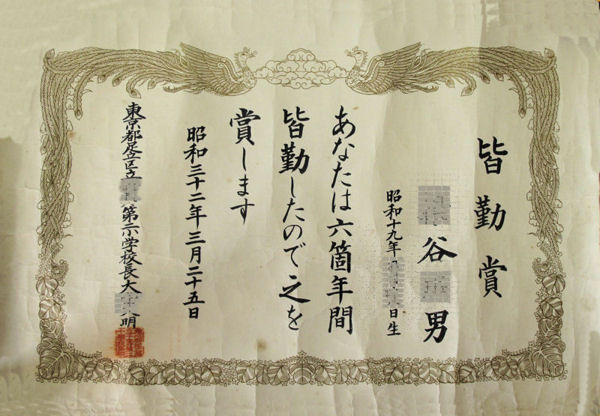 皆勤賞
谷 男
昭和十九年 日生
あなたは六箇年間
皆勤したので之を
賞します
昭和三十二年三月二十五日
東京都足立区立 第二小学校長大 明